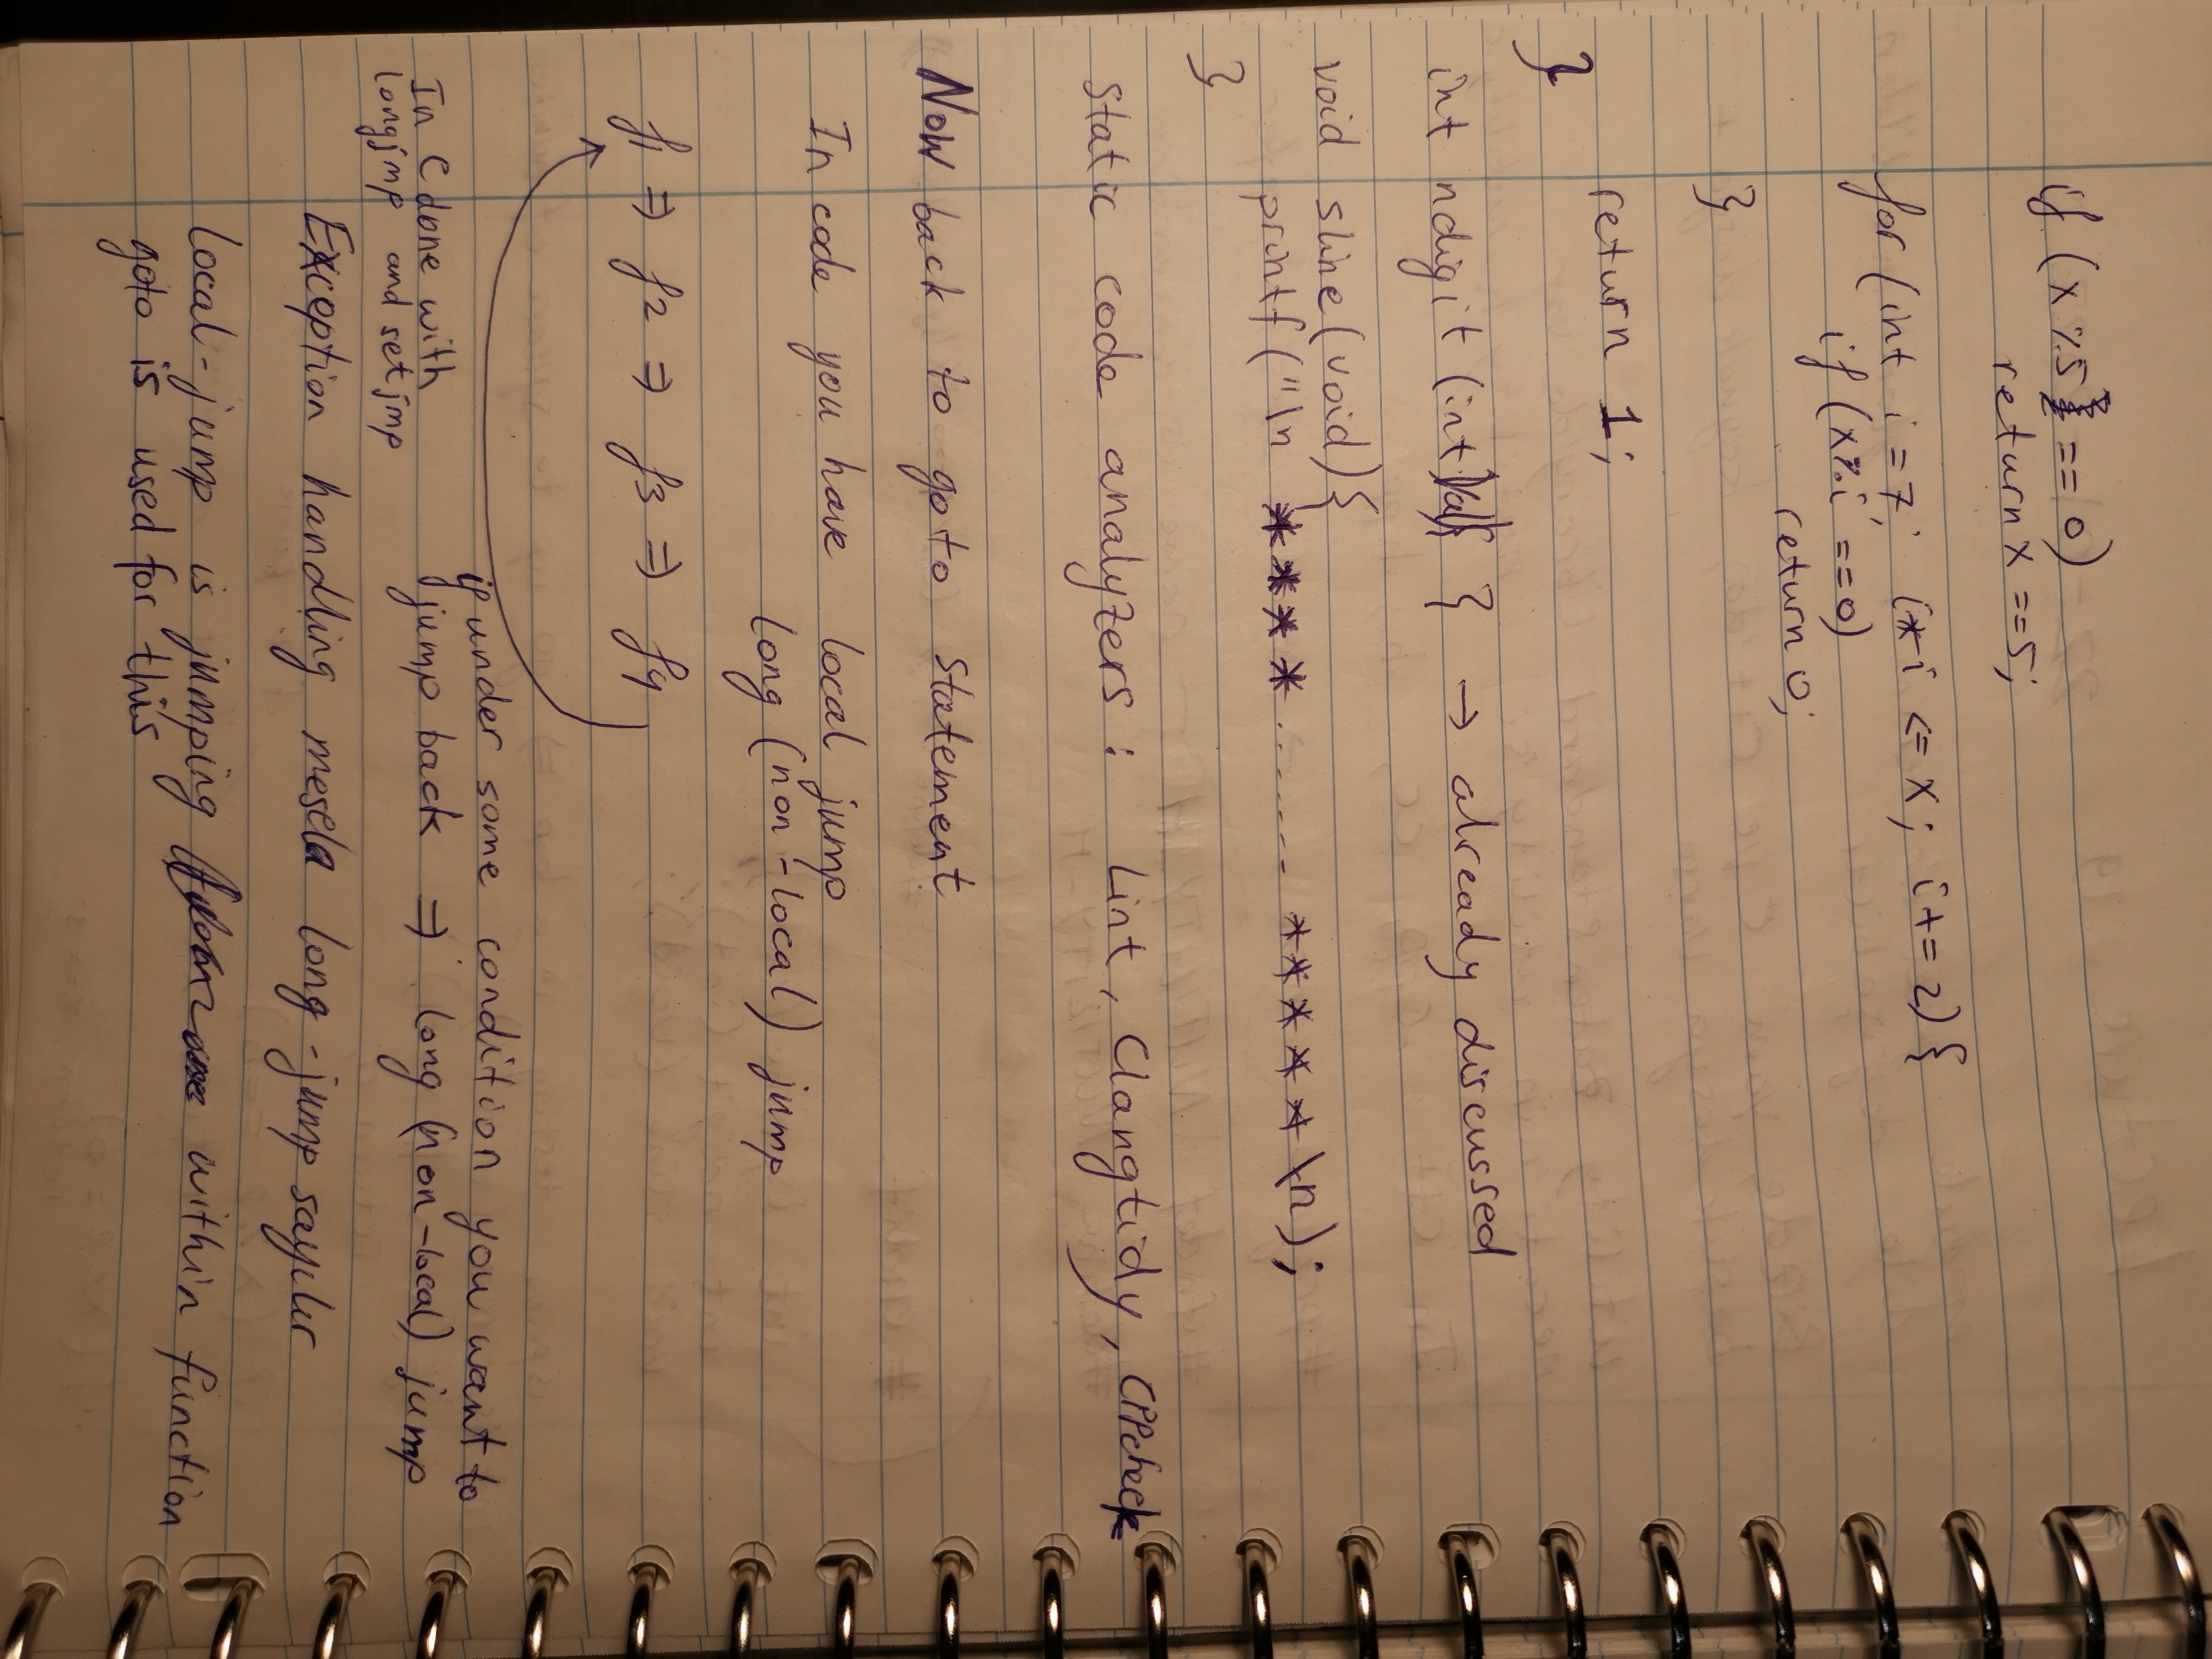 if (x %5 == 0)
return x ==5;
for (int i =7; i*i <= x; i+= 2){
if (x%i ==0)
return 0;
}
return 1;
}
int ndigit (int val){ } → already discussed
void sline(void){
printf("\n **** ....... ***** \n);
}
static code analyzers: Lint, Clangtidy, CPPcheck
Now back to goto statement
In code you have local jump
long (non-local) jump
f1 ⇒ f2 ⇒ f3 ⇒ f4
if under some condition you want to
jump back ⇒ long (non-local) jump
In C done with
longjmp and setjmp
Exception handling mesela long-jump sayılır
local-jump is jumping within function
goto is used for this